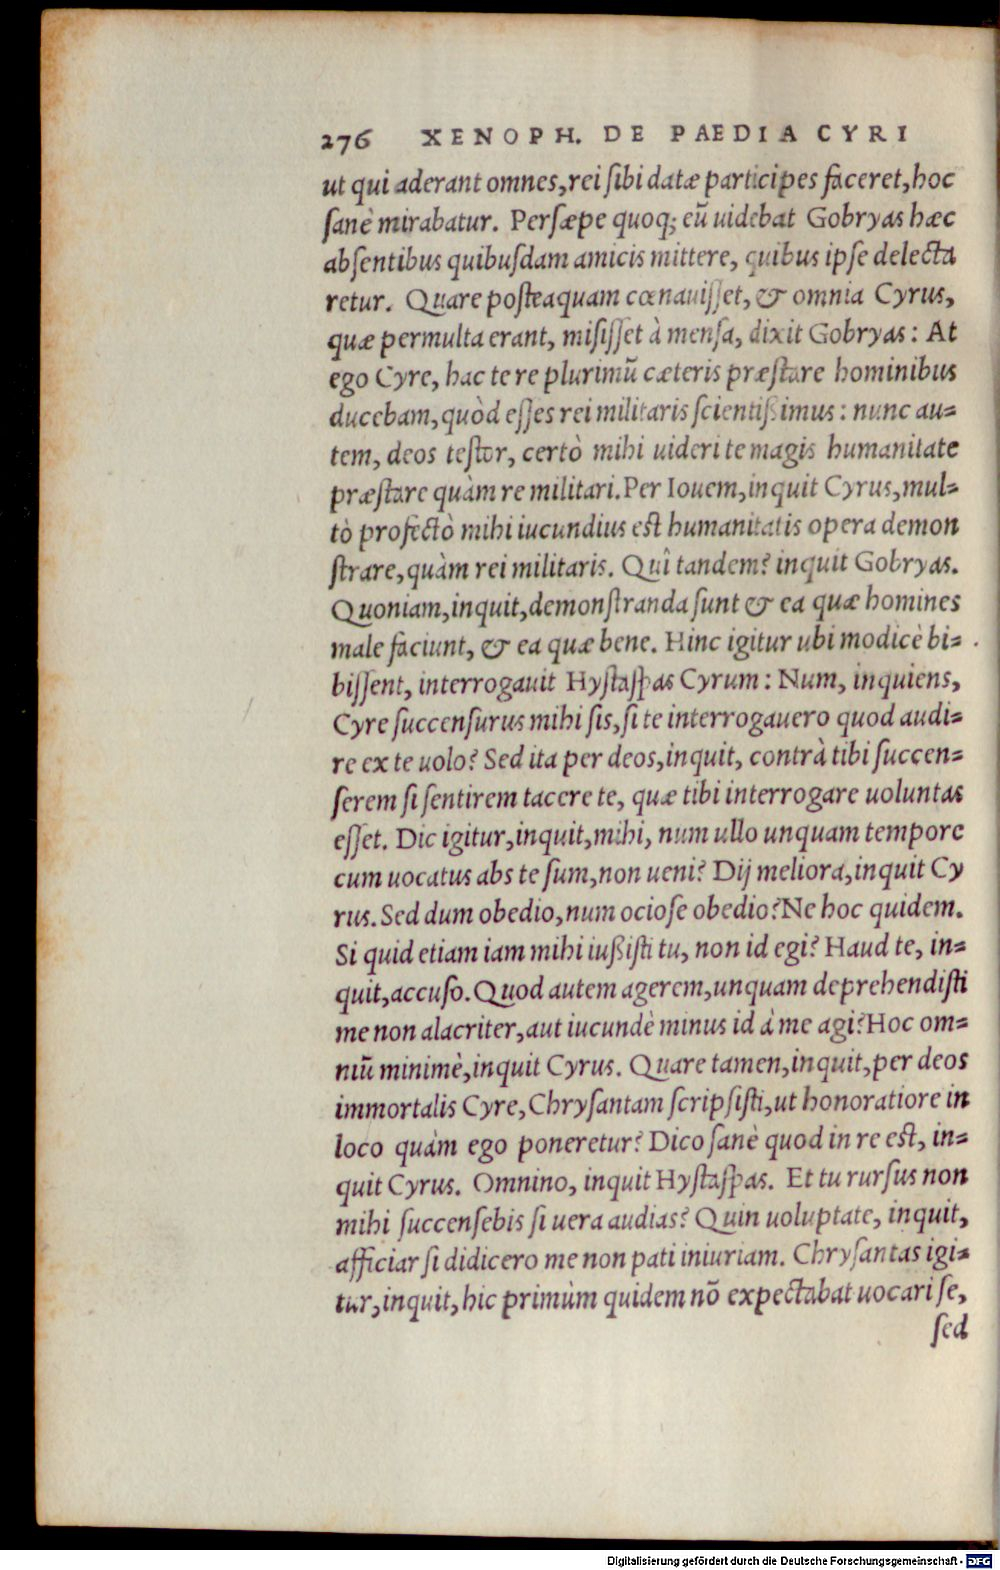 276 XENOPH. DE PAEDIA CYRI
ut qui aderant omnes, rei ſibi datæ participes faceret, hoc
ſanè mirabatur. Perſæpe quoq; eũ uidebat Gobryas hæc
abſentibus quibuſdam amicis mittere, quibus ipſe delecta
retur. Quare poſteaquam cœnauiſſet, & omnia Cyrus,
quæ permulta erant, miſiſſet à menſa, dixit Gobryas: At
ego Cyre, hac te re plurimũ cæteris præſtare hominibus
ducebam, quòd eſſes rei militaris ſcientißimus: nunc au=
tem, deos teſtor, certò mihi uideri te magis humanitate
præſtare quàm re militari. Per Iouem, inquit Cyrus, mul=
tò profectò mihi iucundius eſt humanitatis opera demon
ſtrare, quàm rei militaris. Quî tandem? inquit Gobryas.
Quoniam, inquit, demonſtranda ſunt & ea quæ homines
male faciunt, & ea quæ bene. Hinc igitur ubi modicè bi=
biſſent, interrogauit Hyſtaſpas Cyrum: Num, inquiens,
Cyre ſuccenſurus mihi ſis, ſi te interrogauero quod audi=
re ex te uolo? Sed ita per deos, inquit, contrà tibi ſuccen=
ſerem ſi ſentirem tacere te, quæ tibi interrogare uoluntas
eſſet. Dic igitur, inquit, mihi, num ullo unquam tempore
cum uocatus abs te ſum, non ueni? Dij meliora, inquit Cy
rus. Sed dum obedio, num ocioſe obedio? Ne hoc quidem.
Si quid etiam iam mihi iußiſti tu, non id egi? Haud te, in=
quit, accuſo. Quod autem agerem, unquam deprehendiſti
me non alacriter, aut iucundè minus id à me agi? Hoc om=
niũ minimè, inquit Cyrus. Quare tamen, inquit, per deos
immortalis Cyre, Chryſantam ſcripſiſti, ut honoratiore in
loco quàm ego poneretur? Dico ſanè quod in re eſt, in=
quit Cyrus. Omnino, inquit Hyſtaſpas. Et tu rurſus non
mihi ſuccenſebis ſi uera audias? Quin uoluptate, inquit,
afficiar ſi didicero me non pati iniuriam. Chryſantas igi=
tur, inquit, hic primùm quidem nõ expectabat uocari ſe,
ſed
Digitalisierung gefördert durch die Deutsche Forschungsgemeinschaft - DFG